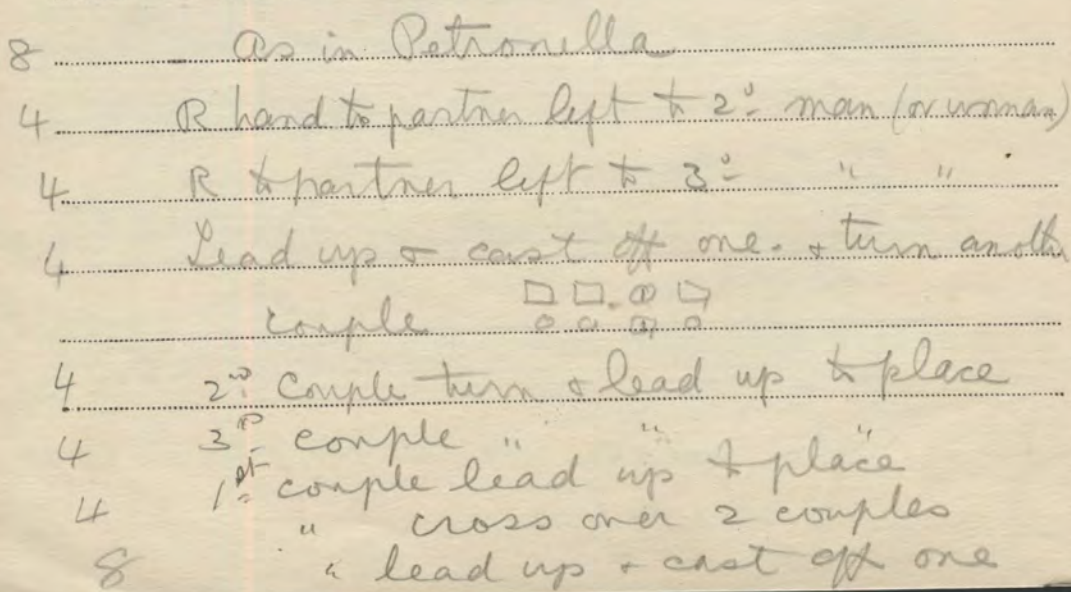 8 As in Petronella
4 R hand to partner left to 2d man (or woman)
4 R to partner left to 3d " "
4 Lead up & cast off one. & turn anoth
couple
4 2nd couple turn & lead up to place
4 3rd couple " " "
1st couple lead up to place
4 " cross over 2 couples
8 " lead up & cast off one